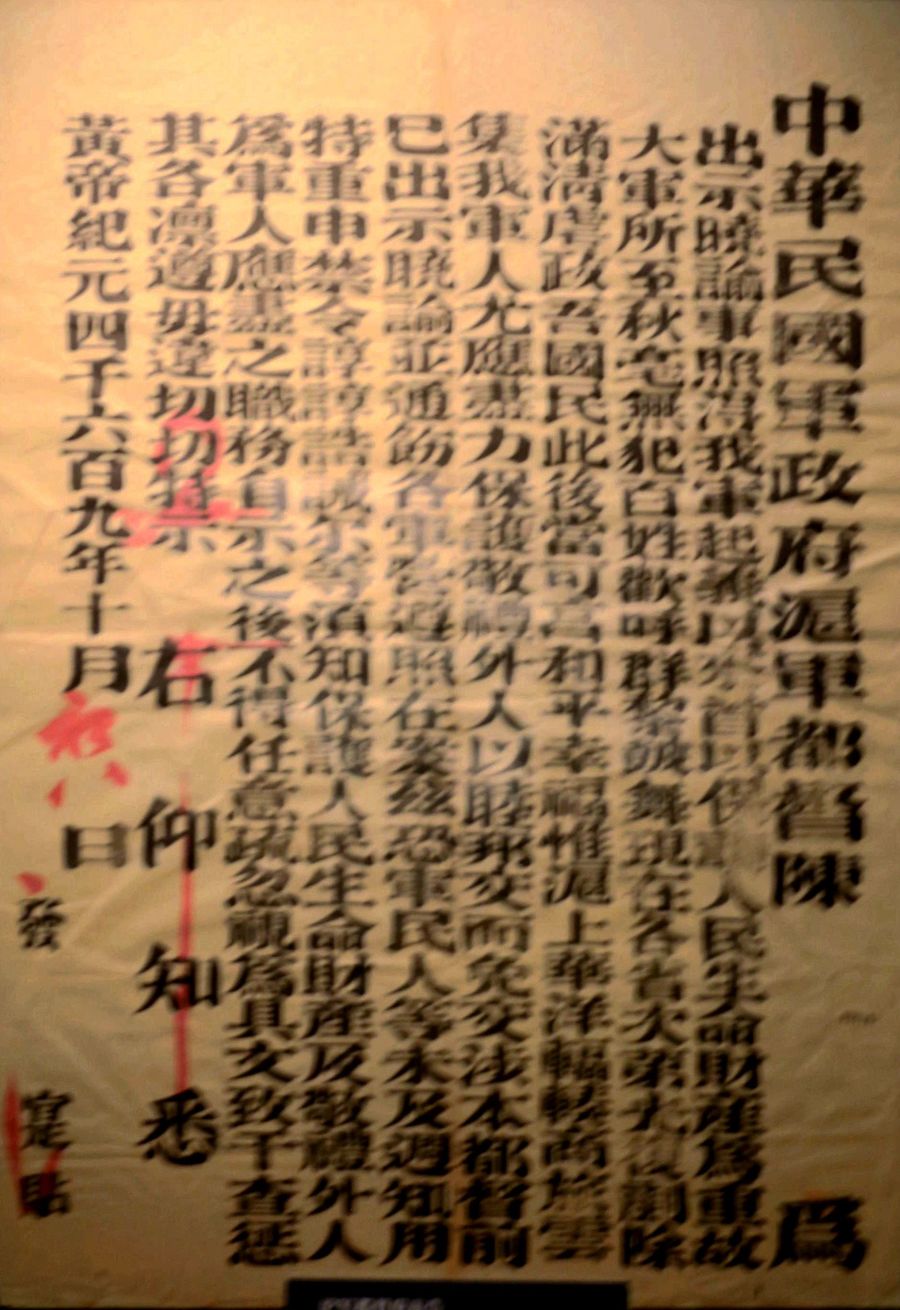 中華民國軍政府滬軍都督陳 為
出示曉諭事照得我軍起義以來首以保護人民生命財產為重故
大軍所至秋毫無犯百姓歡呼群黎鼓舞現在各省次第光復剷除
滿淸虐政吾國民此後當可享和平幸福惟滬上華洋輻輳商旅雲
集我軍人尤應盡力保護敬禮外人以睦邦交而免交涉本都督前
已出示曉諭並通飭各軍營遵照在案茲恐軍民人等未及週知用
特重申禁令諄諄誥誡尔等須知保護人民生命財產及敬禮外人
為軍人應盡之職務自示之後不得任意疏忽視為具文致干查懲
其各凜遵毋違切切特示
右仰知悉
黃帝紀元四千六百九年十月初八日
發 實貼